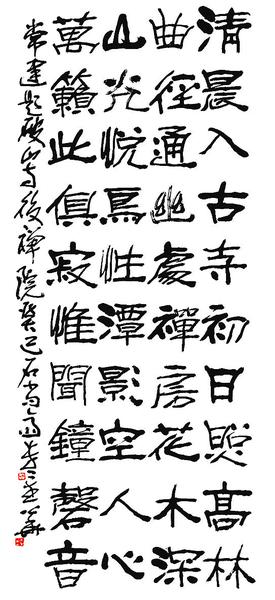 清晨入古寺初日照高林
曲徑通幽處禪房花木深
山光悅鳥性潭影空人心
萬籟此俱寂惟聞鐘磬音
常建題破山寺後禪院癸巳